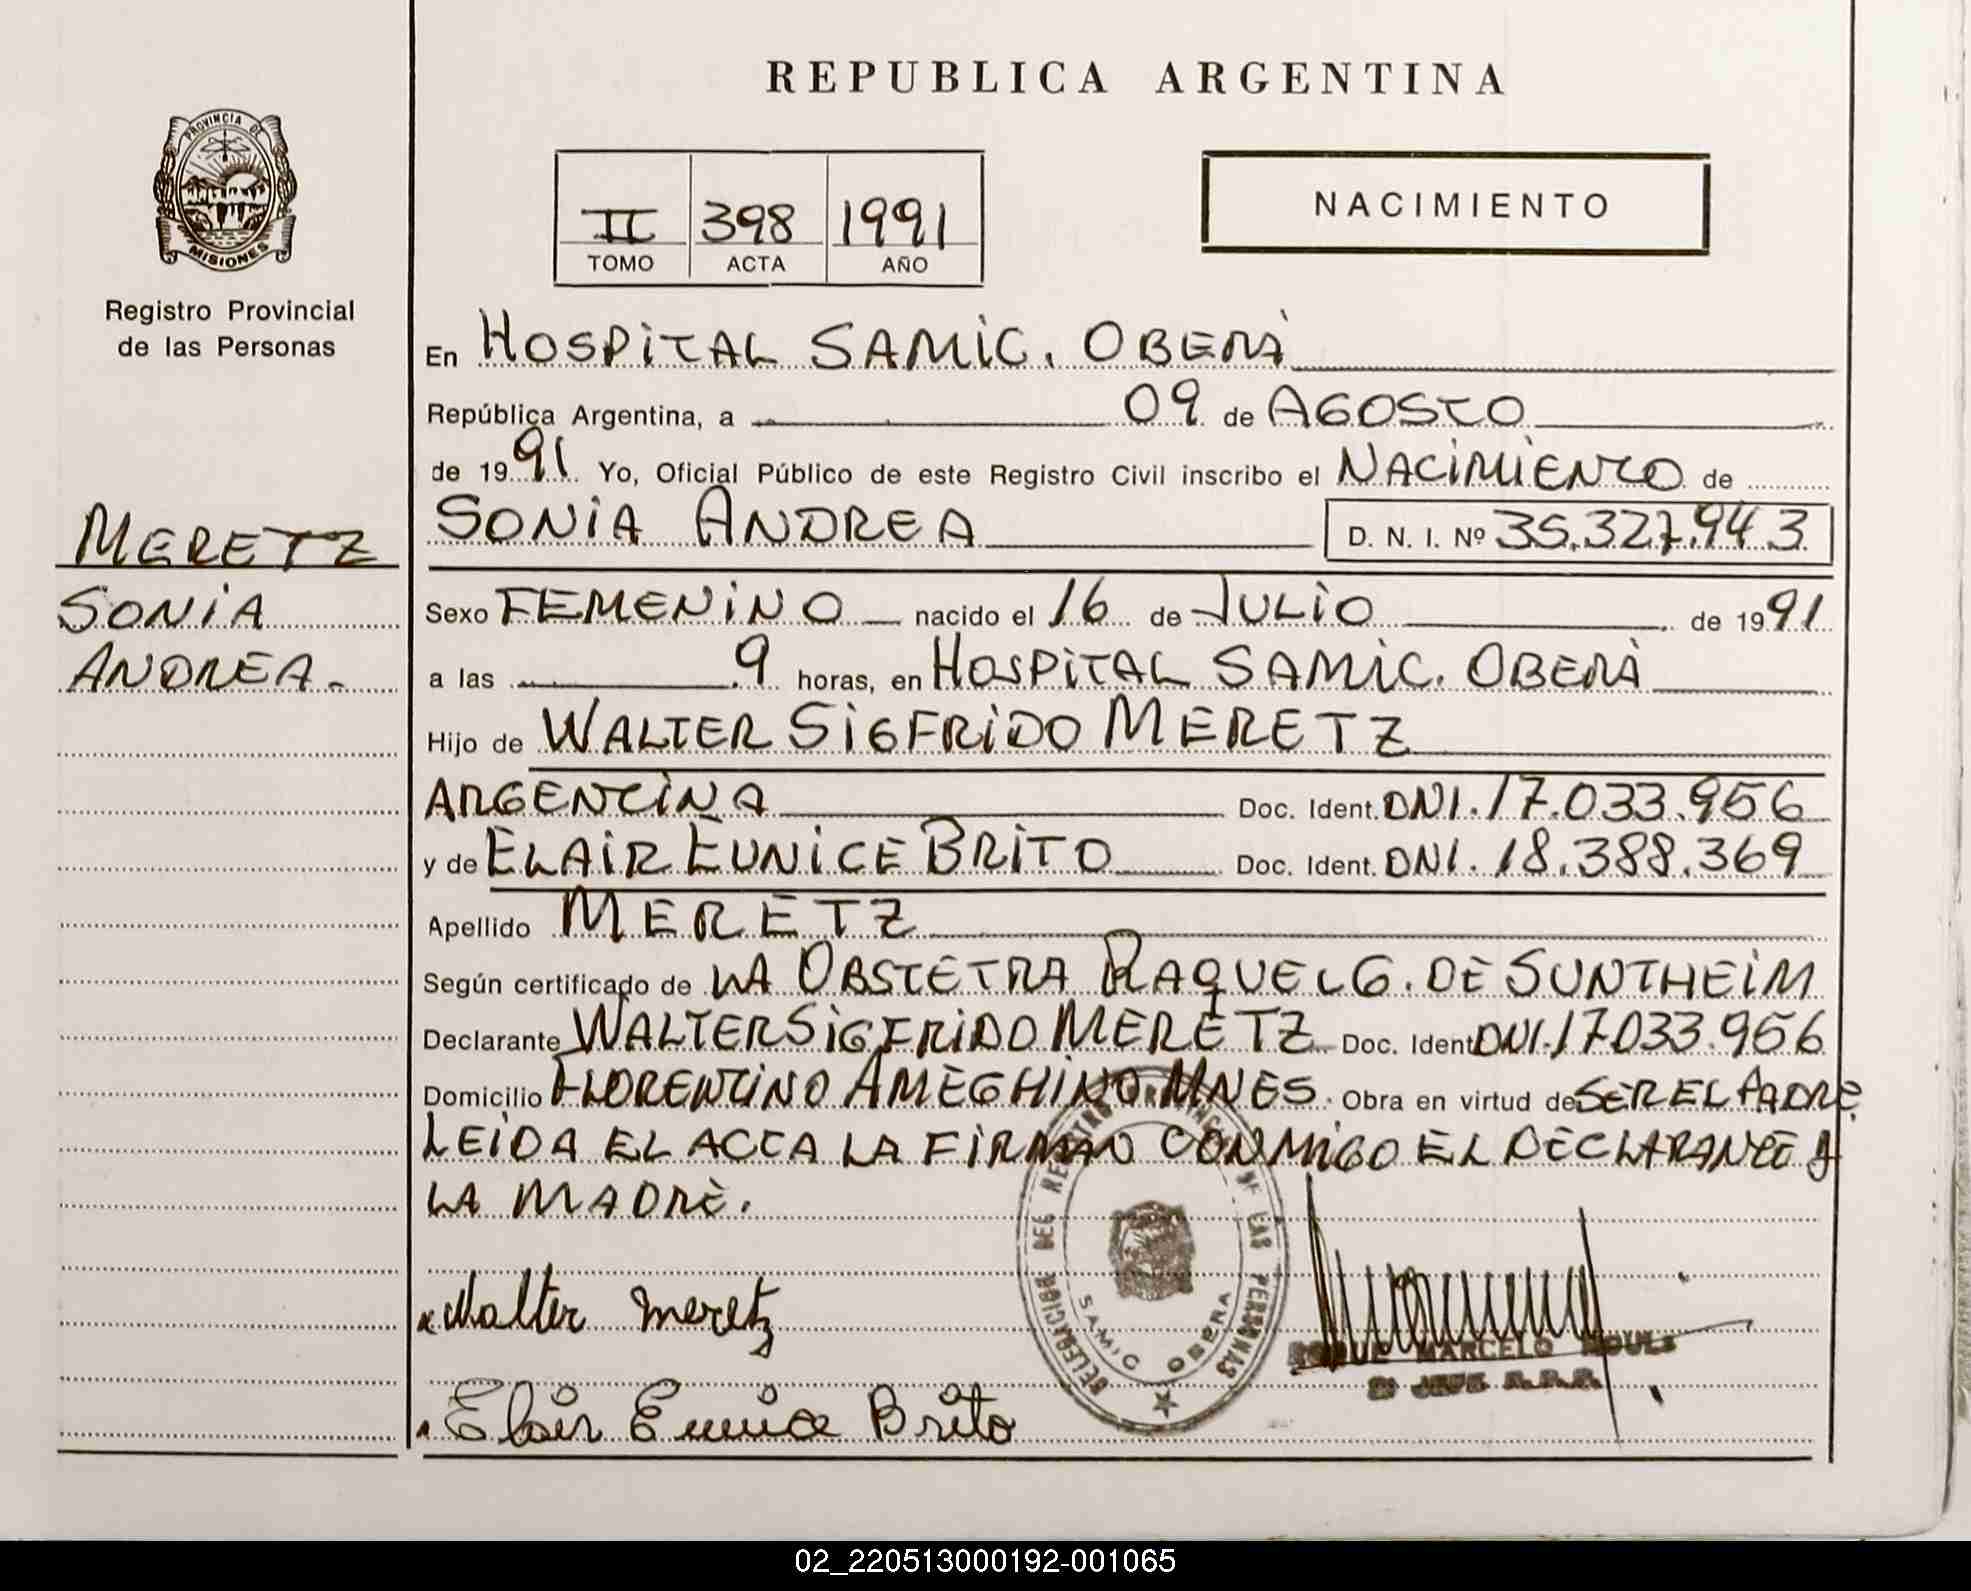 REPUBLICA ARGENTINA
PROVINCIA DE
MISIONES
Registro Provincial
de las Personas
II 398 1991
TOMO ACTA AÑO
NACIMIENTO
MERETZ
SONIA
ANDREA.
En HOSPITAL SAMIC. OBERÁ
República Argentina, a 09 de AGOSTO
de 1991 Yo, Oficial Público de este Registro Civil inscribo el NACIMIENTO de
SONIA ANDREA D. N. I. Nº 35.327.943
Sexo FEMENINO nacido el 16 de JULIO de 1991
a las 9 horas, en HOSPITAL SAMIC. OBERÁ
Hijo de WALTER SIGFRIDO MERETZ
ARGENTINA Doc. Ident. DNI. 17.033.956
y de ELAIR EUNICE BRITO Doc. Ident. DNI. 18.388.369
Apellido MERETZ
Según certificado de LA OBSTETRA RAQUEL G. DE SUNTHEIM
Declarante WALTER SIGFRIDO MERETZ Doc. Ident DNI. 17.033.956
Domicilio FLORENTINO AMEGHINO. MNES. Obra en virtud de SER EL PADRE.
LEIDA EL ACTA LA FIRMAN CONMIGO EL DECLARANTE Y
LA MADRE.
Walter Meretz
Elair Eunice Brito
DELEGACION DEL REGISTRO PROVINCIAL DE LAS PERSONAS
SAMIC OBERA
MARCELO
02_220513000192-001065